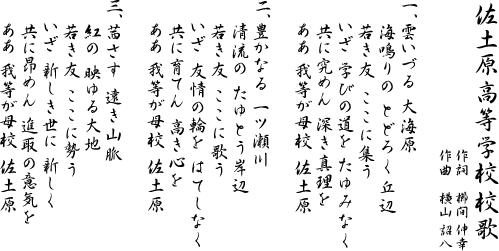 佐土原高等学校校歌
作詞 櫛間仲幸
作曲 横山詔八
一、雲いづる 大海原
海鳴りの とどろく丘辺
若き友 ここに集う
いざ 学びの道を たゆみなく
共に究めん 深き真理を
ああ 我等が母校 佐土原
二、豊かなる 一ツ瀬川
清流の たゆとう岸辺
若き友 ここに歌う
いざ 友情の輪を はてしなく
共に育てん 高き心を
ああ 我等が母校 佐土原
三、茜さす 遠き山脈
紅の 映ゆる大地
若き友 ここに勢う
いざ 新しき世に 新しく
共に昂めん 進取の意気を
ああ 我等が母校 佐土原